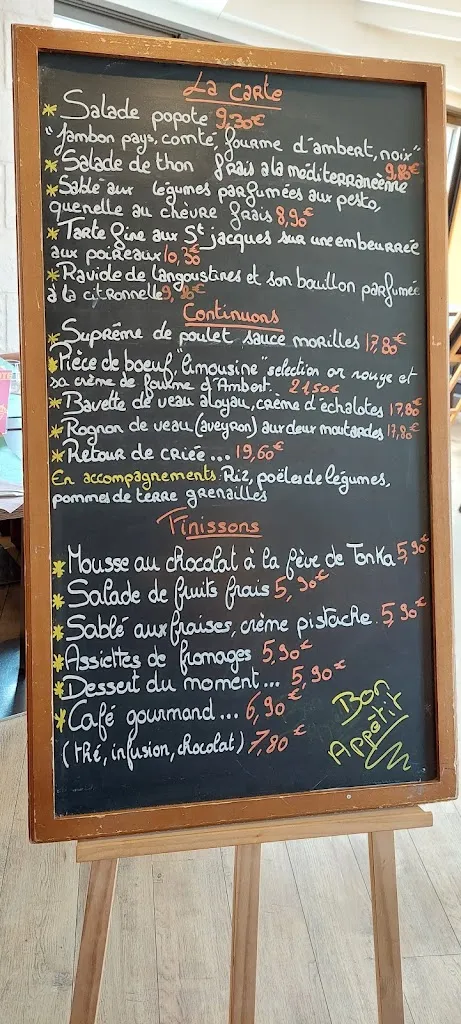 La Carte
* Salade popote 9,30€
"jambon pays, comté, fourme d'ambert, noix"
* Salade de thon frais a la méditerranéenne 9,80€
* Sablé aux légumes parfumées aux pesto,
quenelle au chèvre frais 8,90€
* Tarte fine aux St jacques sur une embeurrée
aux poireaux 10,30€
* Raviole de langoustines et son bouillon parfumée
à la citronnelle 9,80€
Continuons
* Suprême de poulet sauce morilles 17,80€
* Pièce de boeuf, "limousine" selection or rouge et
sa crème de fourme d'Ambert. 21,50€
* Bavette de veau aloyau, crème d'échalotes 17,80€
* Rognon de veau (aveyron) aux deux moutardes 17,80€
* Retour de criée ... 19,60€
En accompagnements: Riz, poêles de légumes,
pommes de terre grenailles
Finissons
* Mousse au chocolat à la fève de Tonka 5,90€
* Salade de fruits frais 5,90€
* Sablé aux fraises, crème pistache. 5,90€
* Assiettes de fromages 5,90€
* Dessert du moment... 5,90€
* Café gourmand ... 6,90€
(thé, infusion, chocolat) 7,80€
Bon
Appétit